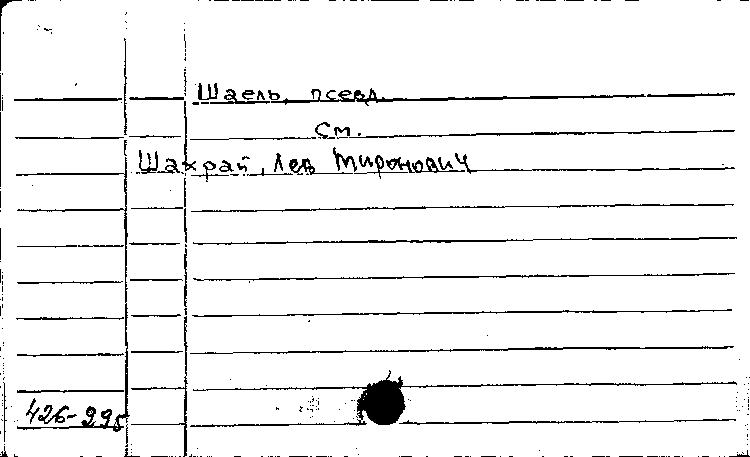 Шаель, псевд.
См.
Шахрай, Лев Миронович
426-995